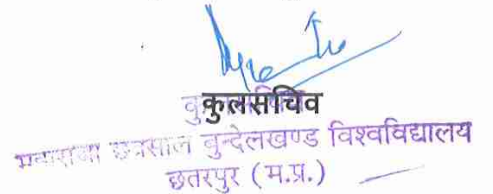 कुलसचिव
महाराजा छत्रसाल बुन्देलखण्ड विश्वविद्यालय
छतरपुर (म.प्र.)